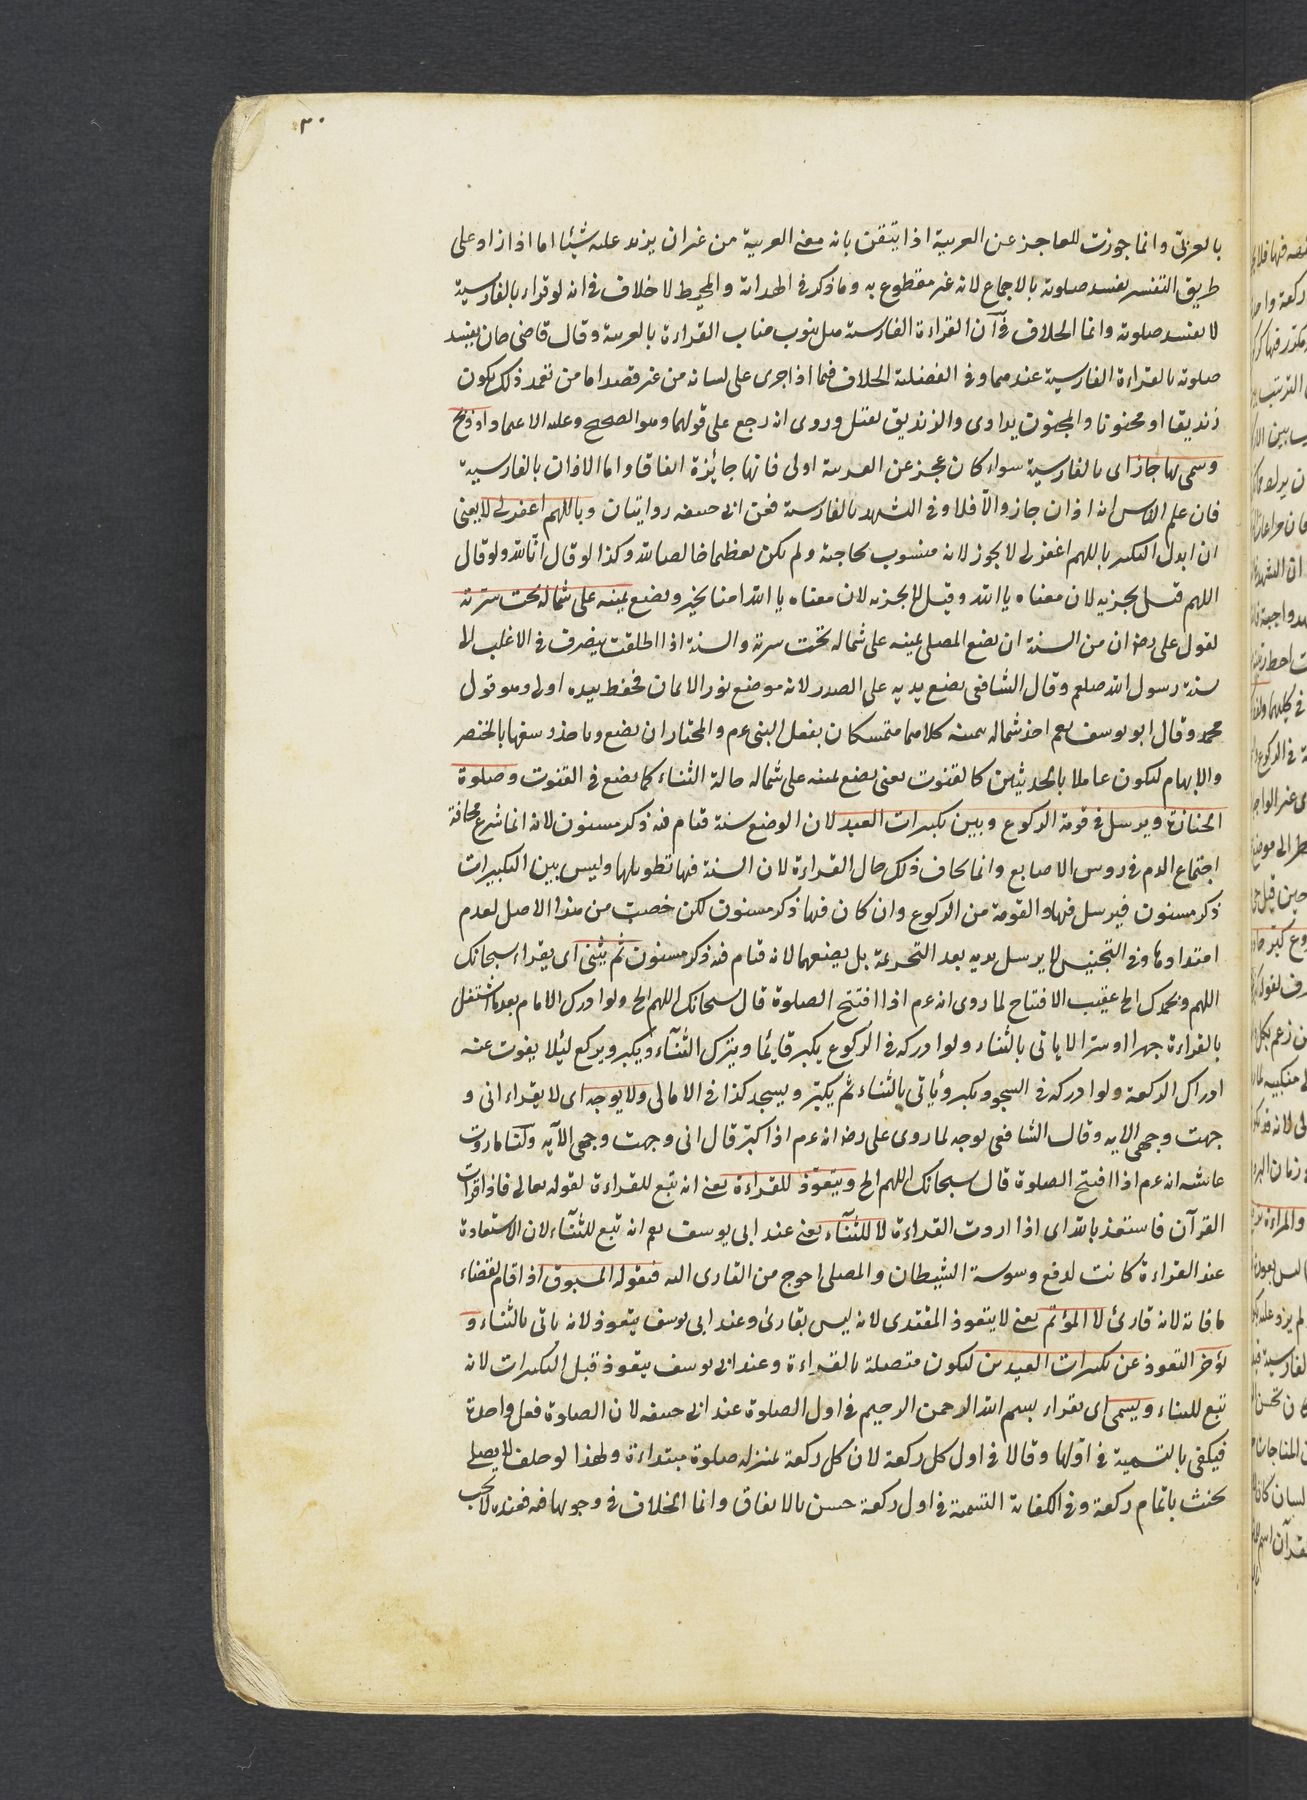 ٣٠
بالعربى وانما جوزت للعاجز عن العربية اذا يتيقن بانه معنى العربية من غير ان يزيد عليه شيئا اما اذا زاد على
طريق التفسير يفسد صلوته بالاجماع لانه غير مقطوع به وما ذكر فى الهداية والمحيط لا خلاف فى انه لو قراء بالفارسية
لا يفسد صلوته وانما الخلاف فى آن القراءة الفارسية هل ينوب مناب القراءة بالعربية وقال قاضى خان يفسد
صلوته بالقراءة الفارسية عندهما وفى الفضلية الخلاف فيما اذا جرى على لسانه من غير قصد اما من تعمد ذلك يكون
زنديقا او مجنونا والمجنون يداوى والزنديق يقتل وروى انه رجع على قولهما وهو الصحيح وعليه الاعتماد او ذبح
وسمى بها جاز اى بالفارسية سواء كان عجز عن العربية اولى فانها جائزة اتفاقا واما الاذان بالفارسية
فان علم الناس انه اذان جاز والاّ فلا وفى التشهد بالفارسية فعن ابى حنيفه روايتان وباللهم اغفر لى لا يعنى
ان ابدل التكبير باللهم اغفر لى لا يجوز لانه مشوب بحاجته ولم يكن تعظيما خالصا لله وكذا لو قال انّا لله ولو قال
اللهم قيل يجزيه لان معناه يا الله وقيل لا يجزيه لان معناه يا الله امنا بخير ويضع يمينه على شماله تحت سرته
لقول على رض ان من السنة ان يضع المصلى يمينه على شماله تحت سرته والسنة اذا اطلقت ينصرف فى الاغلب الى
سنة رسول الله صلعم وقال الشافعى يضع يديه على الصدر لانه موضع نور الايمان فحفظ بيده اولى وهو قول
محمد وقال ابو يوسف يعم اخذ شماله بيمينه كلاهما متمسكان بفعل النبى عم والمختار ان يضع وياخذ رسغها بالخنصر
والابهام ليكون عاملا بالحديثين كالقنوت يعنى يضع يمينه على شماله حالة الثناء كما يضع فى القنوت وصلوة
الجنازة ويرسل فى قومة الركوع وبين تكبيرات العيد لان الوضع سنة قيام فيه ذكر مسنون لانه انما شرع مخافة
اجتماع الدم فى روس الاصابع وانما يخاف ذلك حال القراءة لان السنة فيها تطويلها وليس بين التكبيرات
ذكر مسنون فيرسل فيها والقومة من الركوع وان كان فيها ذكر مسنون لكن خصت من هذا الاصل لعدم
امتدادها وفى التجنيس لا يرسل يديه بعد التحريمة بل يضعهما لانه قيام فيه ذكر مسنون ثم يثنى اى يقراء سبحانك
اللهم وبحمدك الخ عقيب الافتتاح لما روى انه عم اذا افتتح الصلوة قال سبحانك اللهم الخ ولو ادرك الامام بعد ما اشتغل
بالقراءة جهرا او سترا لا ياتى بالثناء ولو ادركه فى الركوع يكبر قايما ويترك الثناء ويكبر ويركع ليلا يفوت عنه
ادراك الركعة ولو ادركه فى السجود يكبر ويأتى بالثناء ثم يكبّر ويسجد كذا فى الامالى ولا يوجه اى لا يقراء انى و
جهت وجهى الايه وقال الشافعى يوجه لما روى على رض انه عم اذا كبّر قال انى وجهت وجهى الآيه ولنا ما روت
عائشه انه عم اذا افتتح الصلوة قال سبحانك اللهم الخ ويتعوّذ للقراءة يعنى انه تبع للقراءة لقوله تعالى فاذا قرات
القرآن فاستعذ بالله اى اذا اردت القراءة لا للثناء يعنى عند ابى يوسف يعم انه تبع للثناء لان الاستعاذة
عند القراءة كانت لدفع وسوسة الشيطان والمصلى احوج من القارى اليه فيقوله المسبوق اذا قام لقضاء
ما فاته لانه قارئ لا المؤتم يعنى لا يتعوذ المقتدى لانه ليس بقارئ وعند ابى يوسف يتعوذ لانه ياتى بالثناء و
يؤخر التعوذ عن تكبيرات العيدين ليكون متصلة بالقراءة وعند ابى يوسف يتعوذ قبل التكبيرات لانه
تبع للثناء ويسمى اى يقراء بسم الله الرحمن الرحيم فى اول الصلوة عند ابى حنيفه لان الصلوة فعل واحدة
فيكفى بالتسمية فى اوّلها وقالا فى اول كل ركعة لان كل ركعة بمنزلة صلوة مبتداءة ولهذا لو حلف لا يصلى
يحنث باتمام ركعة وفى الكفاية التسمية فى اول ركعة حسن بالاتفاق وانما الخلاف فى وجوبها فيه فعنده لا تجب